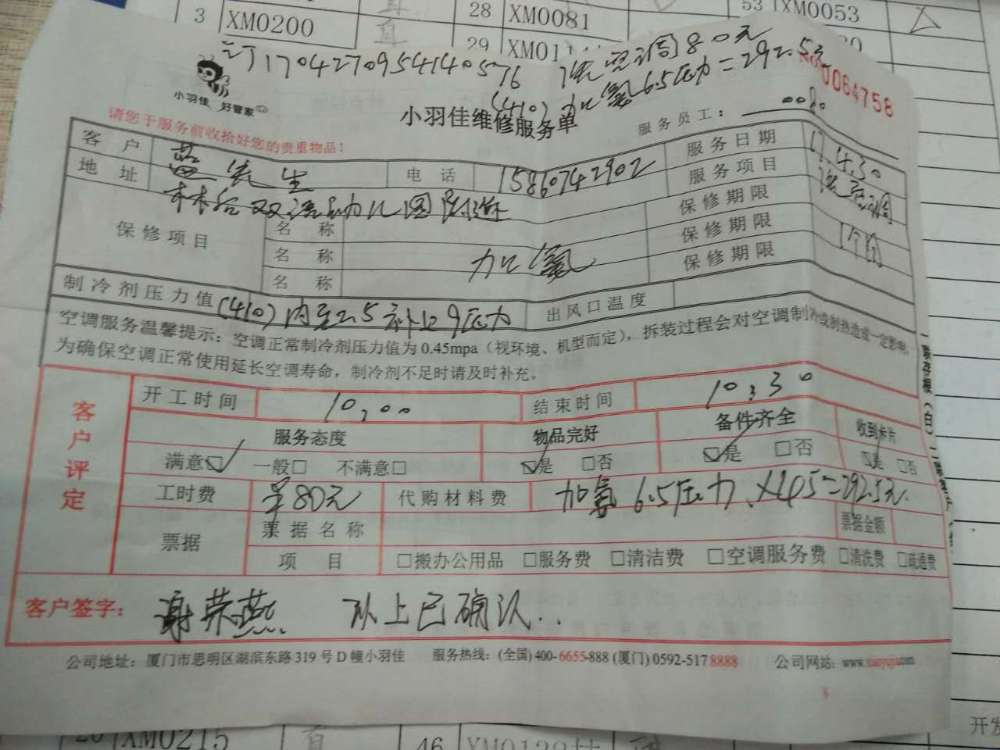 3 XM0200
28 XM0081
53 XM0053
29
订1704270954140576 洗空调80元
(410) 加氟6.5压力=292.5元
小羽佳 好管家
小羽佳维修服务单
服务员工:
0064758
请您于服务前收拾好您的贵重物品!
客户 蓝先生 电话 15860742902 服务日期 17.4.30
地址 服务项目 洗空调
保修项目 名称 保修期限
名称 加氟 保修期限 1个月
名称 保修期限
制冷剂压力值 (410) 内至2.5补9压力 出风口温度
空调服务温馨提示:空调正常制冷剂压力值为0.45mpa(视环境、机型而定),拆装过程会对空调制冷或制热造成一定影响,
为确保空调正常使用延长空调寿命,制冷剂不足时请及时补充。
客户评定
开工时间 10:00 结束时间 10:30
服务态度 物品完好 备件齐全 收到卡片
满意☑ 一般□ 不满意□ ☑是 □否 ☑是 □否 ☑是 □否
工时费 ¥80元 代购材料费 加氟6.5压力×45=292.5元
票据 票据名称 票据金额
项目 □搬办公用品 □服务费 □清洁费 □空调服务费 □清洗费 □疏通费
客户签字: 谢荣燕 以上已确认..
公司地址:厦门市思明区湖滨东路319号D幢小羽佳 服务热线:(全国)400-6655-888 (厦门)0592-5178888 公司网站:www.xiaoyujia.com
XM0215
46